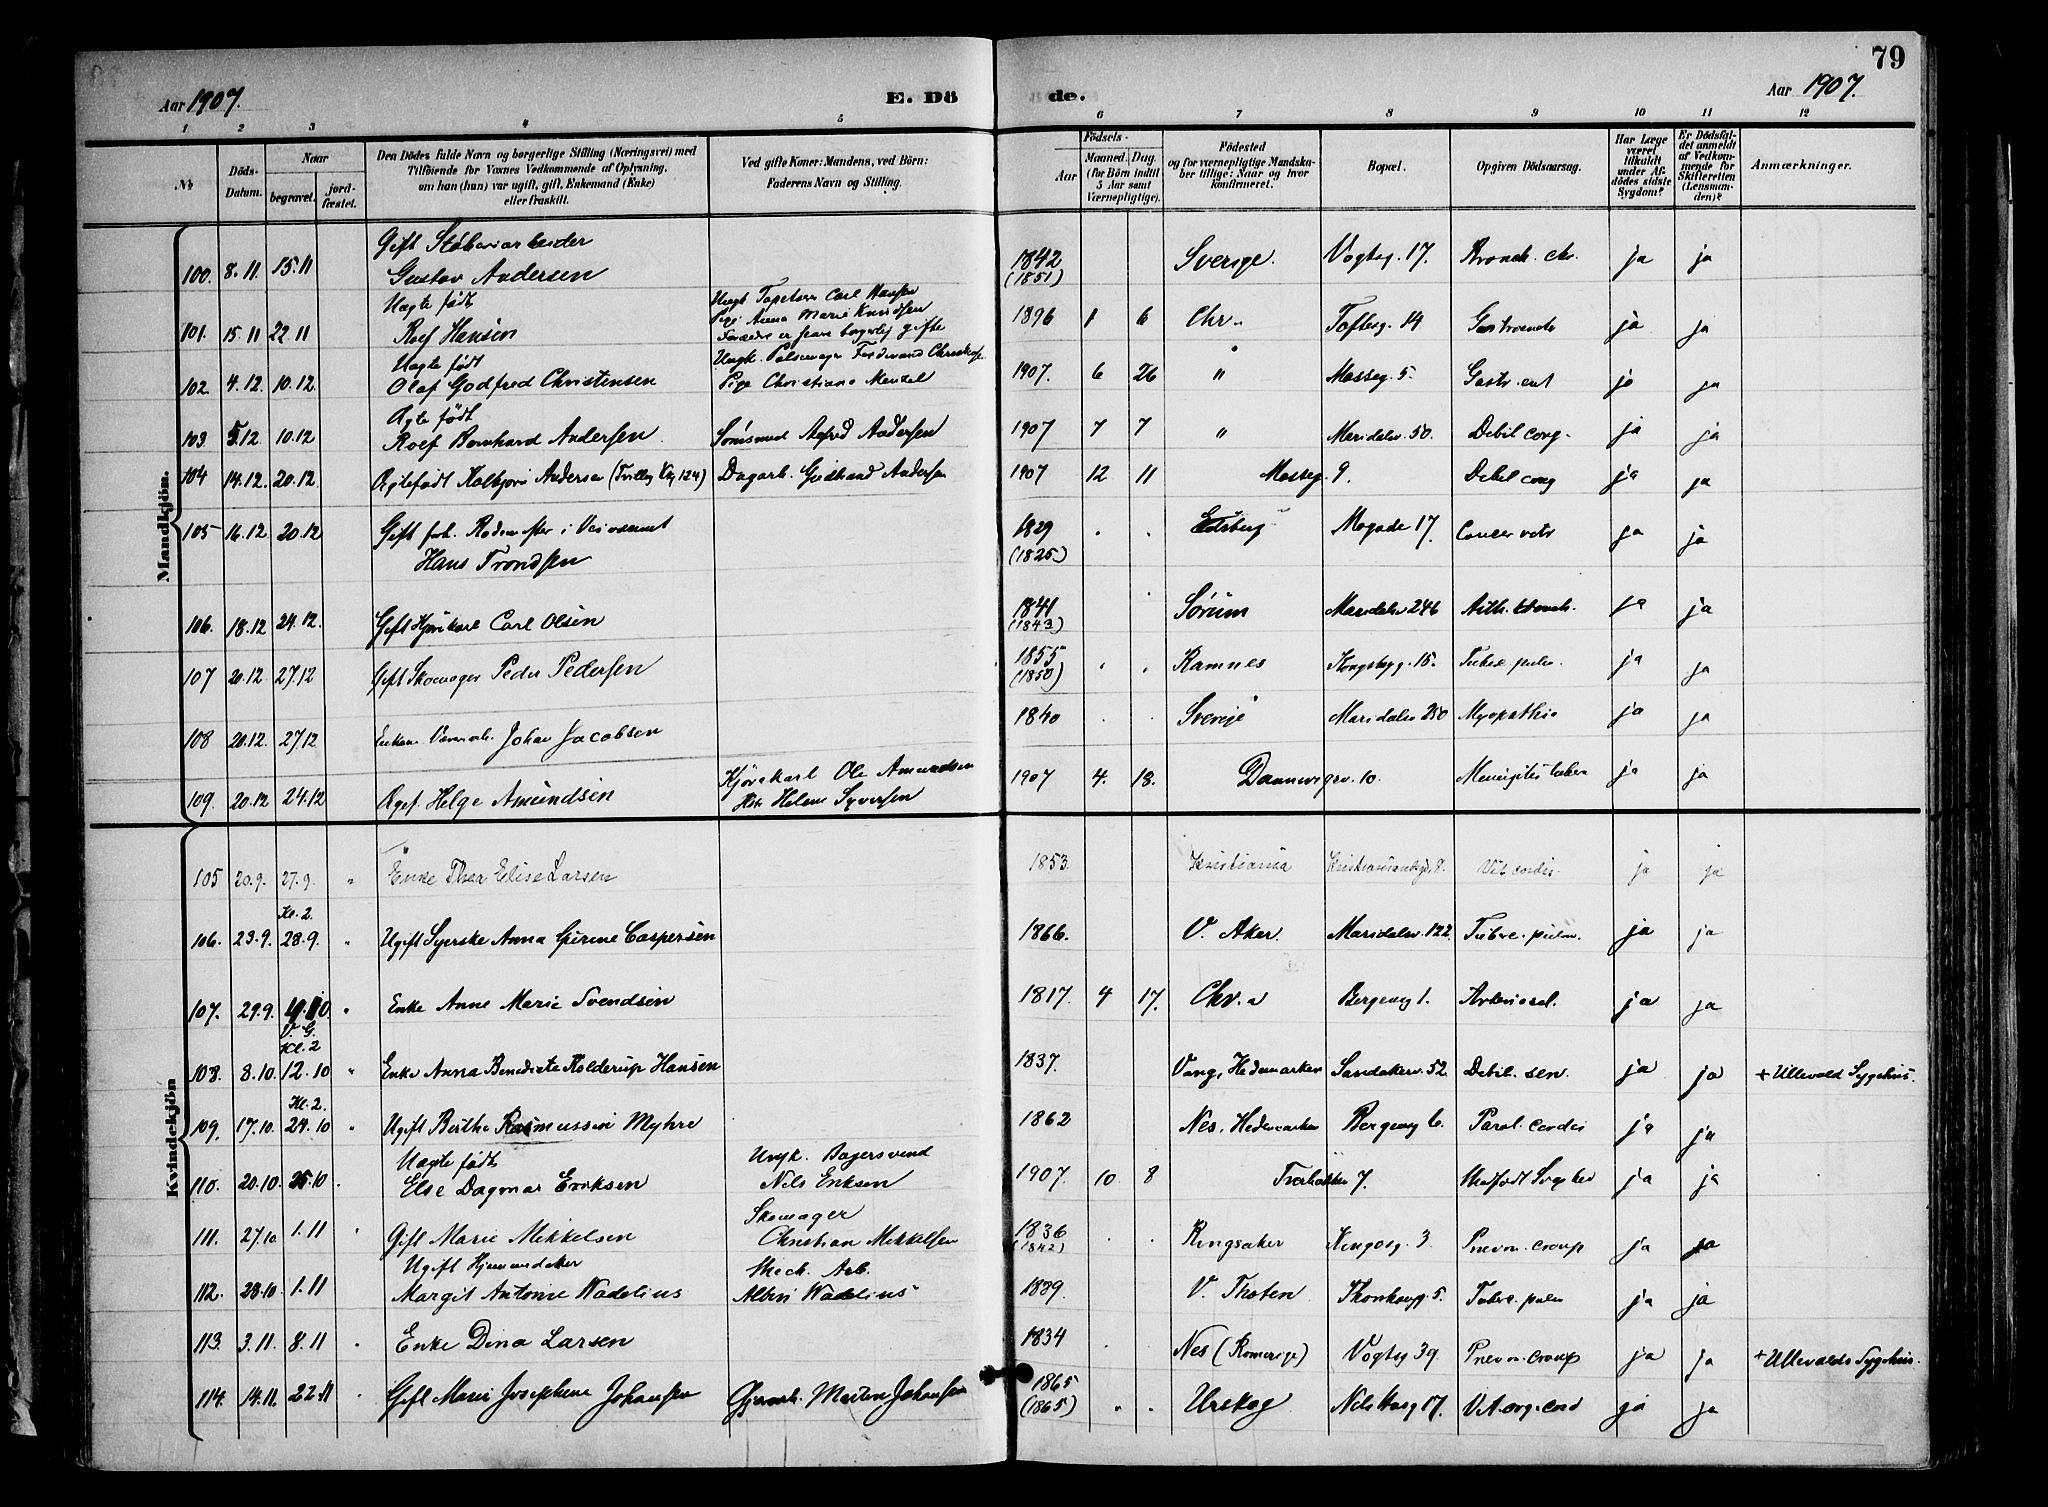 79
Aar 1907.
E. Dö
de.
Aar 1907.
1 2 3 4 5 6 7 8 9 10 11 12
No
Döds-Datum.
Naar
begravet.
jord-fæstet.
Den Dödes fulde Navn og borgerlige Stilling (Næringsvei) med
Tilföiende for Voxnes Vedkommende af Oplysning,
om han (hun) var ugift, gift, Enkemand (Enke)
eller fraskilt.
Ved gifte Koner: Mandens, ved Börn:
Faderens Navn og Stilling.
Födsels-
Aar
Maaned. Dag.
(for Börn indtil
5 Aar samt
Værnepligtige).
Födested
og for værnepligtige Mandska-
ber tillige: Naar og hvor
konfirmeret.
Bopæl.
Opgiven Dödsaarsag.
Har Læge
været
tilkaldt
under Af-
dödes sidste
Sygdom?
Er Dödsfal-
det anmeldt
af Vedkom-
mende for
Skifteretten
(Lensman-
den)?
Anmærkninger.
Mandkjön.
Gift Støberiarbeider
100. 8.11. 15.11 Gustav Andersen 1842 Sverige. Vogtsg. 17. Bronch. chr. ja ja
(1851)
Uægte født
Ungk. Tapetserer Carl Hansen
Pige Anna Marie Knudsen
101. 15.11 22.11 Rolf Hansen Forældre er borgerlig gifte 1896 1 6 Chr. Toftesg. 14 ja ja
Uægte født
Ungk. Ferdinand
102. 4.12. 10.12. Olaf Godfred Christensen Pige Christiane Menzel 1907. 6 26 " Mosseg. 5. Gastr. ent ja ja
Ægte født
103. 5.12 10.12 Rolf Bernhard Andersen. Alfred Andersen 1907 7 7 " Maridalsv. 50. Debil cong. ja ja
104 14.12. 20.12 Ægtefødt Kolbjørn Andersen (Tvilling 124) Dagarb. Andersen 1907 12 11 Mosseg. 9. Debil cong ja ja
105 16.12. 20.12 Gift forh. Rodemester i Veivæsenet 1829 Eidsberg Mogade 17. Cancer ja ja
Hans Trondsen (1825)
106. 18.12 24.12. Gift Kjørekarl Carl Olsen 1841 Sørum Maridalsv 246 ja ja
(1843)
107 20.12 27.12 Gift Skomager Peder Pedersen 1855 Ramnes Kongsbygg. 15. Tubrc. pulm. ja ja
(1850)
108 20.12. 27.12 Johan Jacobsen 1840 Sverige Maridalsv 250 Myopathia ja ja
109. 20.12 24.12 Ægf. Helge Amundsen Kjørekarl Ole Amundsen 1907 4. 18. Dannevigsv. 10. Meningitis tuber ja ja
Helene Syversen
Kvindekjön
105 20.9. 27.9. " Enke Thea Elise Larsen 1853 Kristiania Vit. cordis. ja ja
Kl. 2.
106. 23.9. 28.9. " Ugift Syerske Anna Gurine Caspersen 1866. V. Aker. Maridalsv. 122. Tubrc. pulm. ja ja
107. 29.9. " Enke Anne Marie Svendsen 1817. 4 17. Chr.a Bergensg 1. Arterioscl. ja ja
V. G.
Kl. 2
108. 8.10. 12.10 " Enke Anna Benedicte Kolderup Hansen 1837. Vang, Hedemarken Sandakerv. 52. Debil. sen. ja ja + Ullevold Sygehus.
Kl. 2.
109. 17.10. 24.10 " Ugift Berthe Rasmussen Myhre 1862 Nes, Hedemarken Bergensg 6. Paral. cordis ja ja
Uægte født Ungk. Bagersvend
110. 20.10. 25.10 Else Dagmar Eriksen Nils Eriksen 1907. 10 8 7. Medfødt ja ja
Skomager
111. 27.10 1.11 " Gift Marie Mikkelsen Christian Mikkelsen 1836 Ringsaker Kingosg. 3 Pnevm. croup ja ja
(1842)
Ugift Mech. Arb.
112. 28.10. 1.11 Margit Antonie Wadelius Albin Wadelius 1889. V. Thoten Tubrc. pulm ja ja
113. 3.11. 8.11 Enke Dina Larsen 1834 Nes (Romerige) Vogtsg 39 Pnevm. croup ja ja + Ullevolds Sygehus.
114. 14.11. 22.11 Gift Marie Josephine Johansen Morten Johansen 1865 Urskog Nils Huusg 17. Vit. org. cord ja ja
(1865)